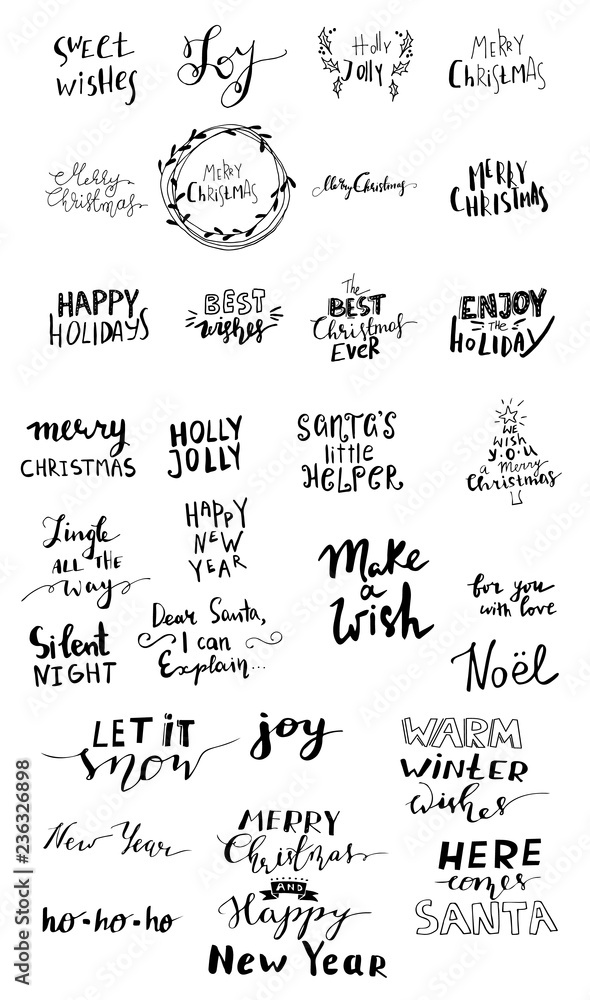 Sweet
wishes
Joy
Holly
Jolly
Merry
Christmas
Merry
Christmas
Merry
Christmas
Merry Christmas
Merry
Christmas
HAPPY
HOLIDAYS
BEST
wishes
The
BEST
Christmas
EVER
ENJOY
the
HOLIDAY
merry
CHRISTMAS
HOLLY
JOLLY
SANTA'S
little
HELPER
WE
wish
y.o.u
a Merry
Christmas
Jingle
ALL THE
way
HAPPY
NEW
YEAR
Make
a
wish
for you
with love
Silent
NIGHT
Dear Santa,
I can
Explain...
Noël
LET iT
snow
joy
WARM
WiNTER
wishes
New Year
MERRY
Christmas
AND
Happy
New Year
HERE
comes
SANTA
ho-ho-ho
Adobe Stock | #236326898